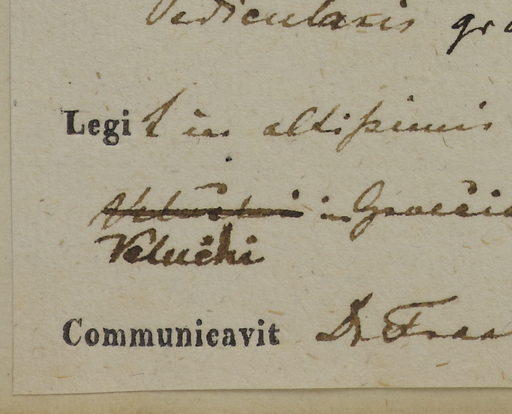 Pedicularis gr
Legit in altissimis
in Graecia
Veluchi
Communicavit Dr Fraa